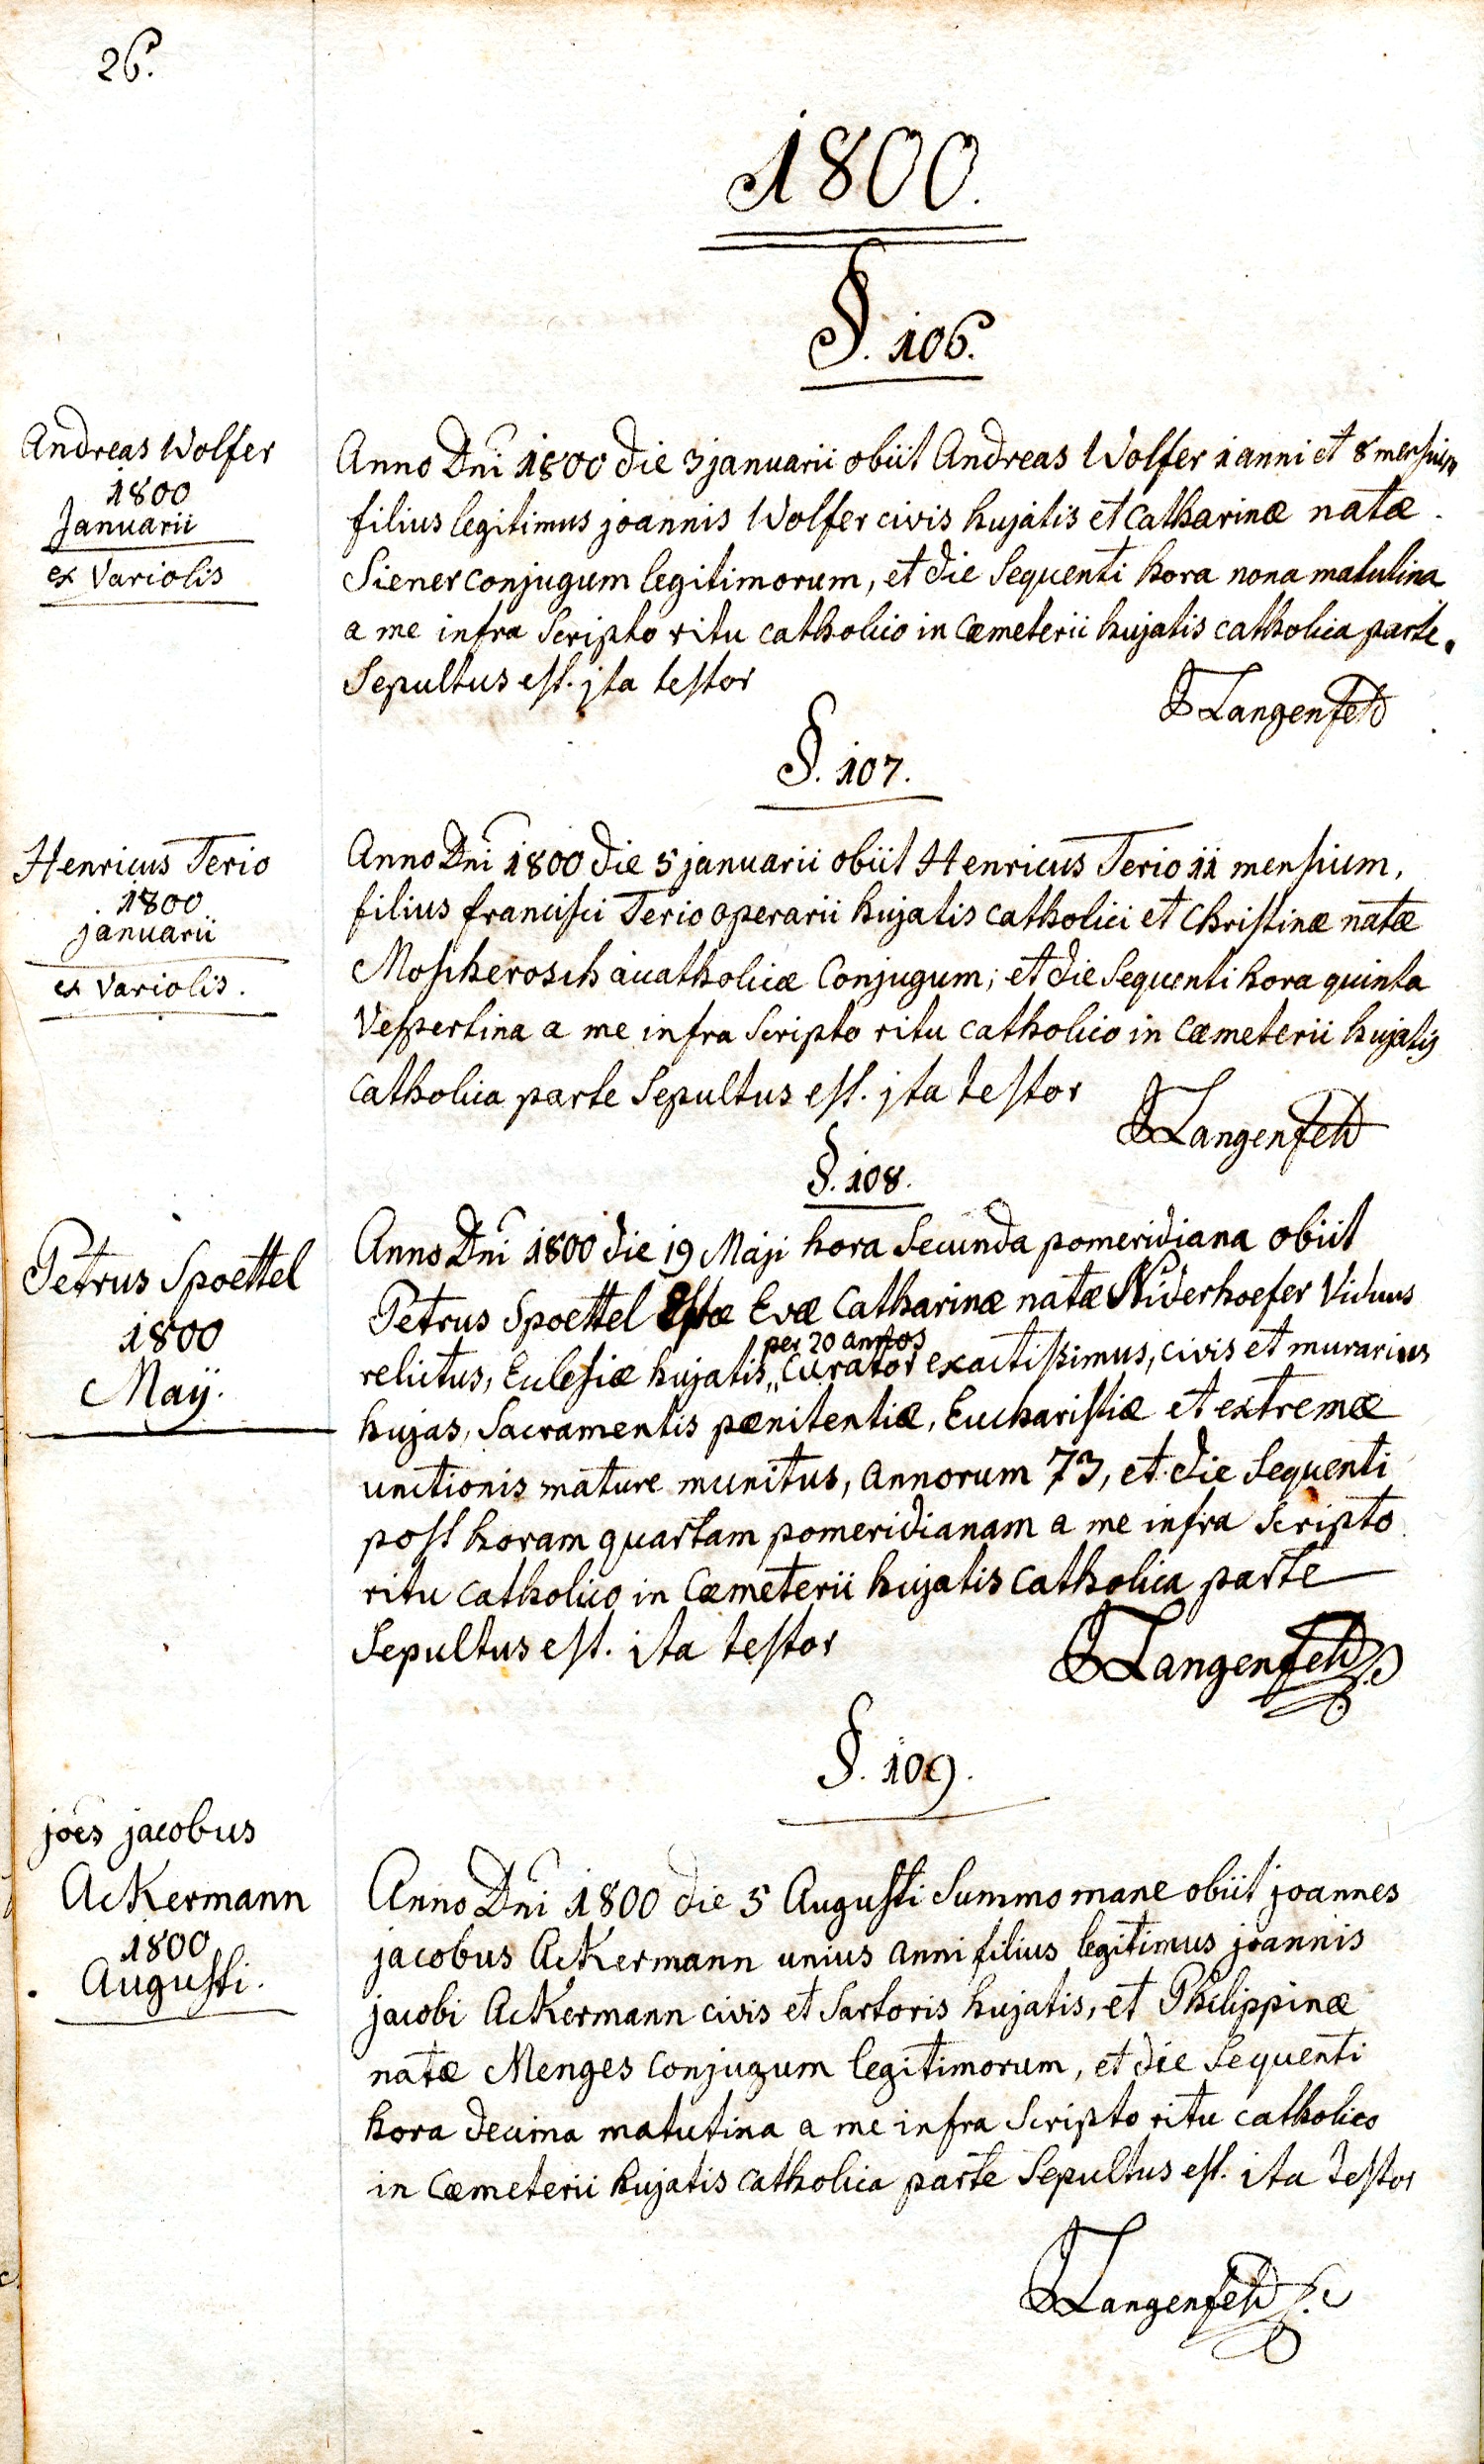 26.
1800.
§. 106.
Andreas Wolfer
1800
Januarii
ex Variolis
Anno Dni 1800 die 3 januarii obiit Andreas Wolfer 1 anni et 8 mensium
filius legitimus joannis Wolfer civis hujatis et Catharinæ natæ
Siener conjugum legitimorum, et die sequenti hora nona matutina
a me infra scripto ritu catholico in Cæmeterii hujatis catholica parte
Sepultus est. jta testor
Langenfeld
§. 107.
Henricus Terio
1800
januarii
ex Variolis.
Anno Dni 1800 die 5 januarii obiit Henricus Terio 11 mensium,
filius francisci Terio operarii hujatis catholici et Christinæ natæ
Moscherosch acatholicæ Conjugum; et die sequenti hora quinta
Vespertina a me infra scripto ritu catholico in Cæmeterii hujatis
catholica parte Sepultus est. jta testor
Langenfeld
§. 108.
Petrus Spoettel
1800
Maij.
Anno Dni 1800 die 19 Maji hora secunda pomeridiana obiit
Petrus Spoettel Evæ Catharinæ natæ Niderhoefer Viduus
per 20 annos
relictus, Eclesiæ hujatis,, Curator exactissimus, civis et murarius
hujas, Sacramentis pænitentiæ, Eucharistiæ et extremæ
unctionis mature munitus, annorum 73, et die sequenti
post horam quartam pomeridianam a me infra scripto
ritu catholico in Cæmeterii hujatis catholica parte
Sepultus est. ita testor
Langenfeld
§. 109.
joes jacobus
Ackermann
1800
Augusti.
Anno Dni 1800 die 5 Augusti Summo mane obiit joannes
jacobus Ackermann unius anni filius legitimus joannis
jacobi Ackermann civis et Sartoris hujatis, et Philippinæ
natæ Menges conjugum legitimorum, et die sequenti
hora decima matutina a me infra scripto ritu catholico
in Cæmeterii hujatis catholica parte Sepultus est. ita testor
Langenfeld